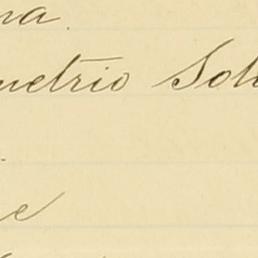 na.
metrio Sol
e